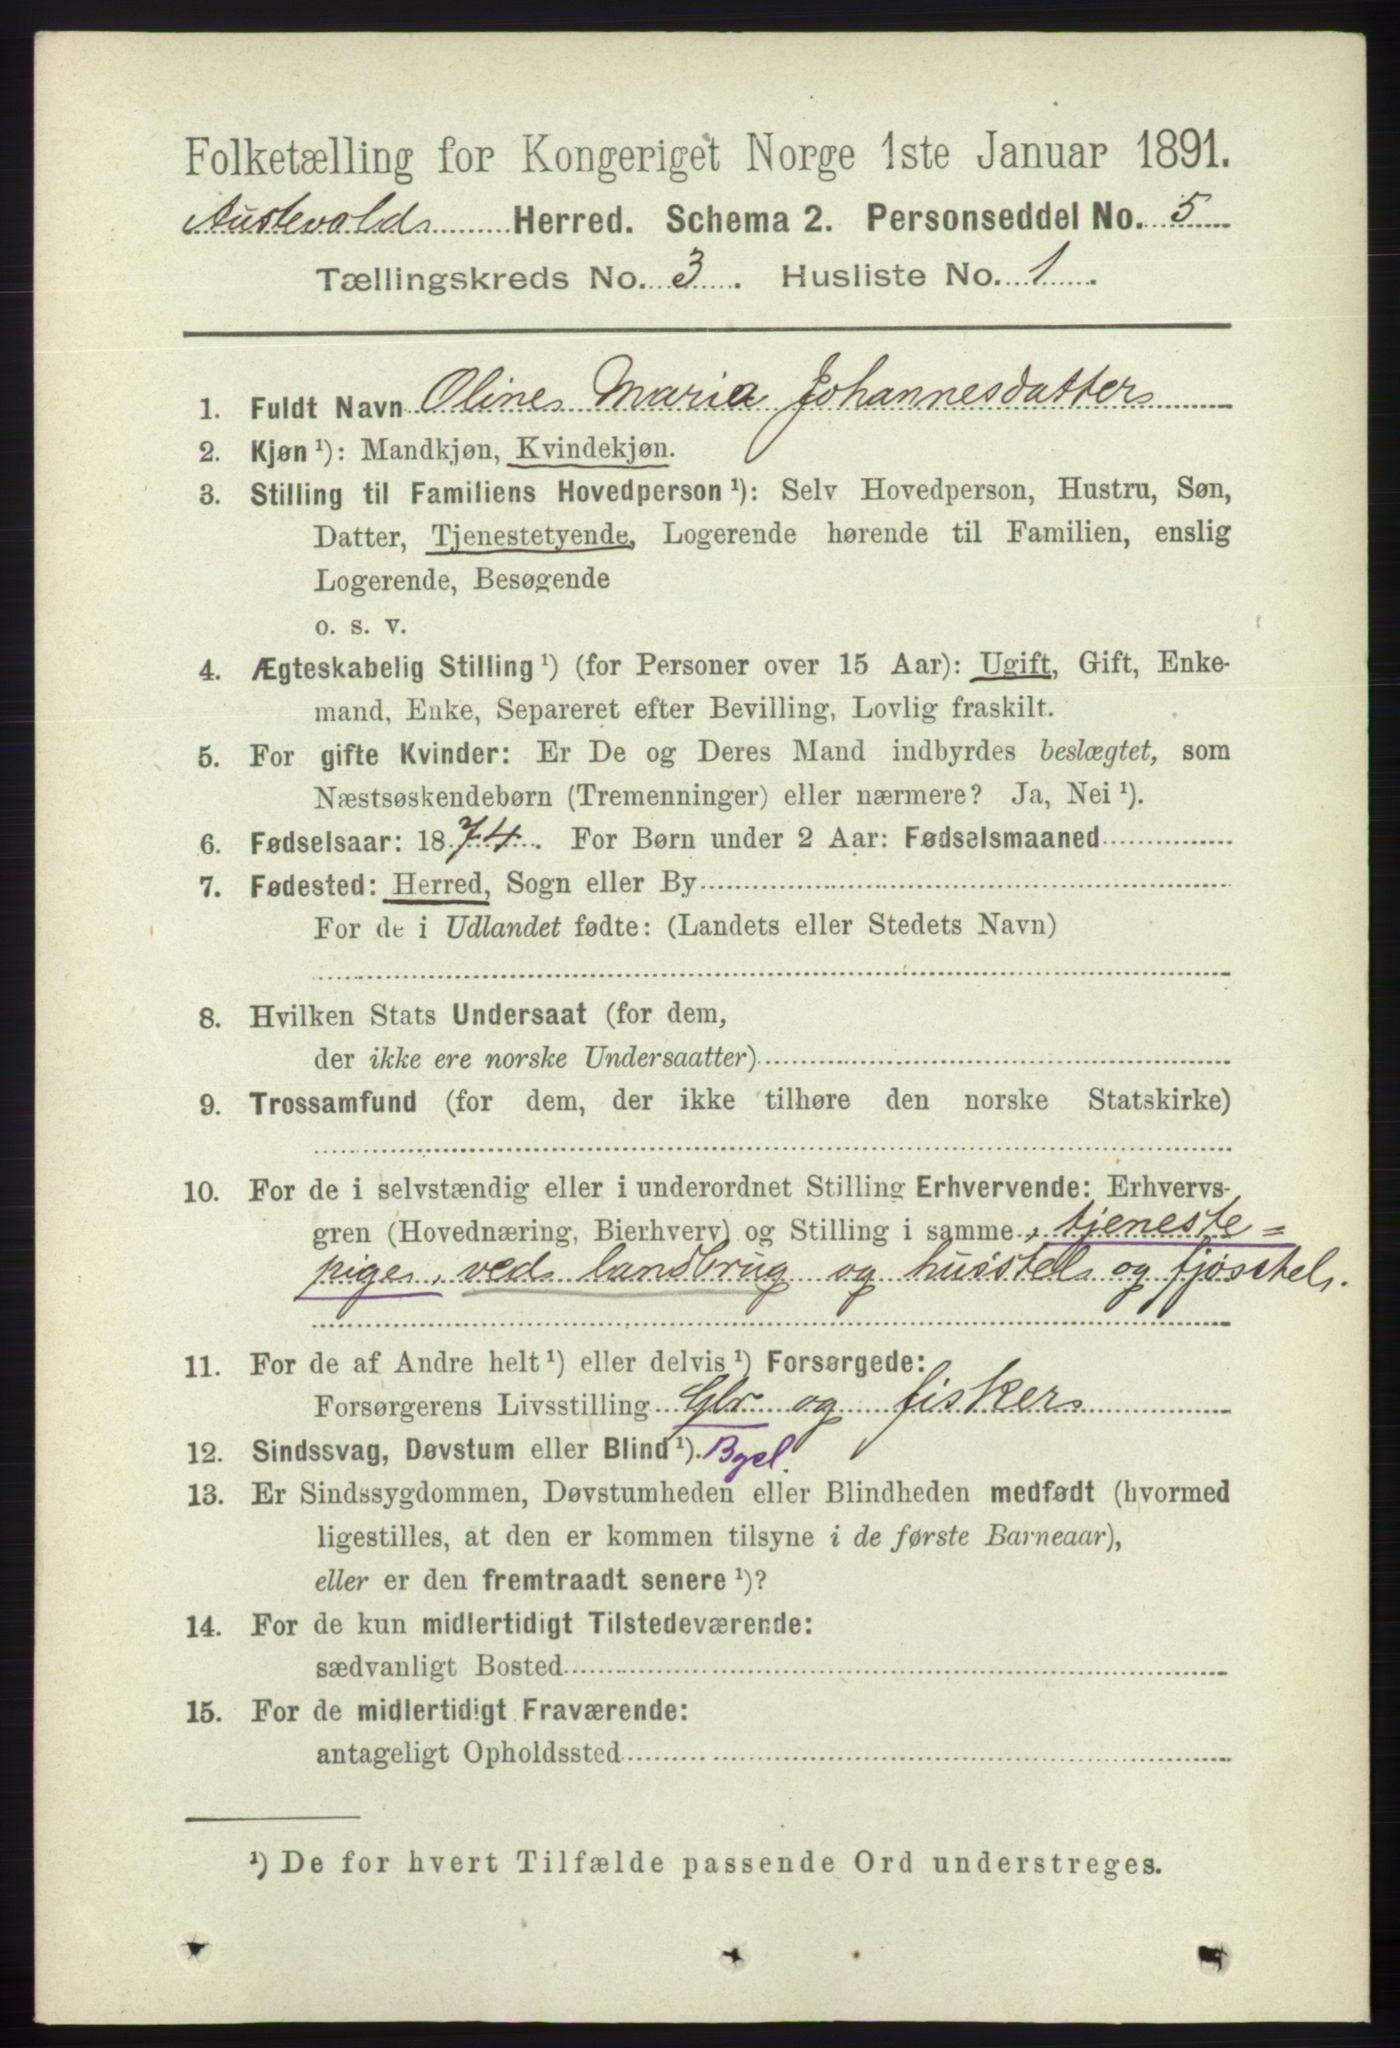 Folketælling for Kongeriget Norge 1ste Januar 1891.
Austevold Herred. Schema 2. Personseddel No. 5
Tællingskreds No. 3. Husliste No. 1.
1. Fuldt Navn Oline Maria Johannesdatter
2. Kjøn ¹): Mandkjøn, Kvindekjøn.
3. Stilling til Familiens Hovedperson ¹): Selv Hovedperson, Hustru, Søn,
Datter, Tjenestetyende, Logerende hørende til Familien, enslig
Logerende, Besøgende
o. s. v.
4. Ægteskabelig Stilling ¹) (for Personer over 15 Aar): Ugift, Gift, Enke-
mand, Enke, Separeret efter Bevilling, Lovlig fraskilt.
5. For gifte Kvinder: Er De og Deres Mand indbyrdes beslægtet, som
Næstsøskendebørn (Tremenninger) eller nærmere? Ja, Nei ¹).
6. Fødselsaar: 1874. For Børn under 2 Aar: Fødselsmaaned
7. Fødested: Herred, Sogn eller By
For de i Udlandet fødte: (Landets eller Stedets Navn)
8. Hvilken Stats Undersaat (for dem,
der ikke ere norske Undersaatter)
9. Trossamfund (for dem, der ikke tilhøre den norske Statskirke)
10. For de i selvstændig eller i underordnet Stilling Erhvervende: Erhvervs-
gren (Hovednæring, Bierhverv) og Stilling i samme, tjeneste=
pige, ved landbrug og husstel og fjøsstel.
11. For de af Andre helt ¹) eller delvis ¹) Forsørgede:
Forsørgerens Livsstilling Gbr og fisker
12. Sindssvag, Døvstum eller Blind ¹).
13. Er Sindssygdommen, Døvstumheden eller Blindheden medfødt (hvormed
ligestilles, at den er kommen tilsyne i de første Barneaar),
eller er den fremtraadt senere ¹)?
14. For de kun midlertidigt Tilstedeværende:
sædvanligt Bosted
15. For de midlertidigt Fraværende:
antageligt Opholdssted
¹) De for hvert Tilfælde passende Ord understreges.